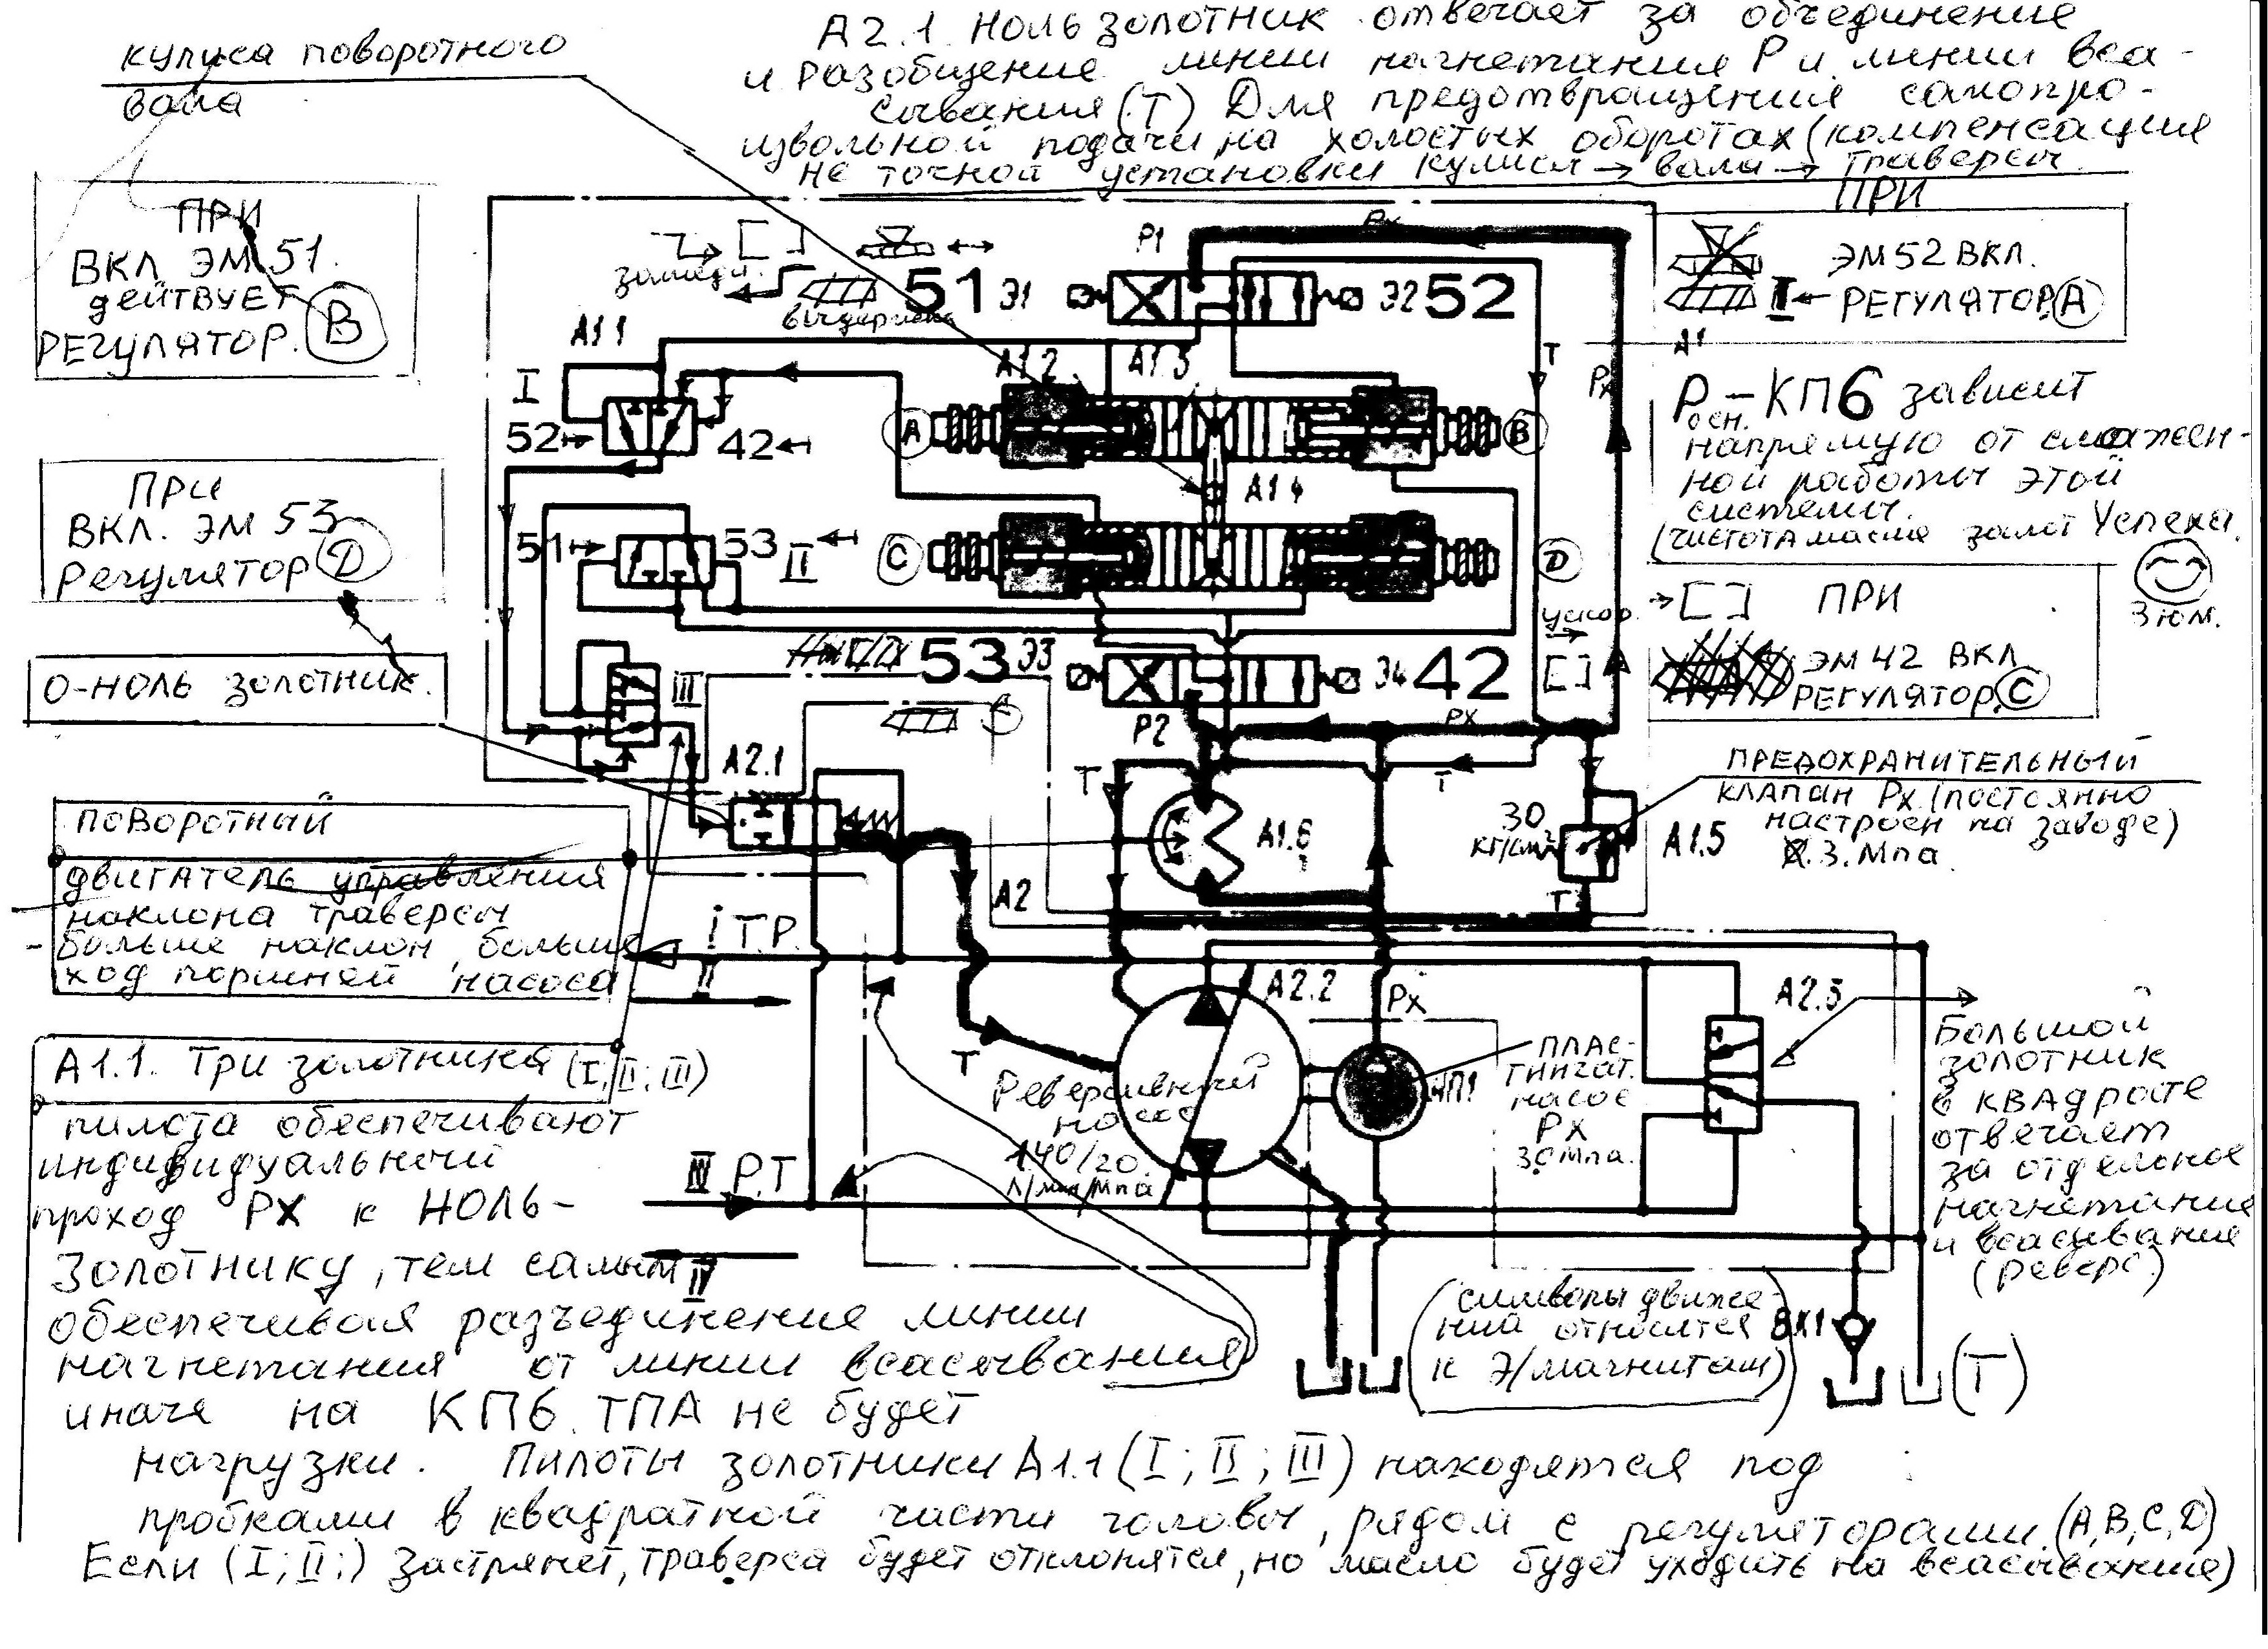 А2.1. Ноль золотник отвечает за объединение
и разобщение линии нагнетания Р и линии вса-
сывания (Т) Для предотвращения самопро-
извольной подачи на холостых оборотах (компенсация
не точной установки кулиса → вала → траверсы
кулиса поворотного
вала
ПРИ
ВКЛ ЭМ 51.
действует
РЕГУЛЯТОР. В
ПРИ
ВКЛ. ЭМ 53
Регулятор D
О-НОЛЬ золотник.
ПРИ
ЭМ 52 ВКЛ.
I ← РЕГУЛЯТОР. А
А1
Росн. – КП6 зависит
напрямую от слажен-
ной работы этой
системы.
(чистота масла залог Успеха.
Зюм.
→ [ ] ПРИ
ЭМ 42 ВКЛ
РЕГУЛЯТОР. С
ПРЕДОХРАНИТЕЛЬНЫЙ
клапан Рх (постоянно
настроен на заводе)
3. Мпа
P1
Рх
51 Э1
Э2 52
выдержка
А1.1
А1.2
А1.3
Т
Рх
I
52
42
А
В
А1.4
51
53
II
С
D
ускор.
53 Э3
Э4 42
[ ]
III
Р2
РХ
А2.1
Т
Т
30
кг/см²
А1.6
А1.5
Т
А2
поворотный
двигатель управления
наклона траверсы
- больше наклон, больше
ход поршней насоса
I Т.Р.
II
А2.2
Рх
А2.5
Т
Реверсивный
насос
140/20.
л/мин/Мпа
НП1
ПЛАС-
ТИНЧАТ.
насос
Рх
3.0 Мпа.
Большой
золотник
в квадрате
отвечает
за отдельное
нагнетание
и всасывание
(реверс)
III Р.Т
IV
А1.1. Три золотника (I; II; III)
пилота обеспечивают
индивидуальный
проход РХ к НОЛЬ-
золотнику, тем самым
обеспечивая разъединение линии
нагнетания от линии всасывания
иначе на КП6 ТПА не будет
нагрузки. Пилоты золотники А1.1 (I; II; III) находятся под
пробками в квадратной части головы, рядом с регуляторами. (А, В, С, D)
Если (I; II;) застрянет, траверса будет отклонятся, но масло будет уходить на всасывание)
(символы движе-
ний относится
к Э/магнитам)
ВК1
(Т)